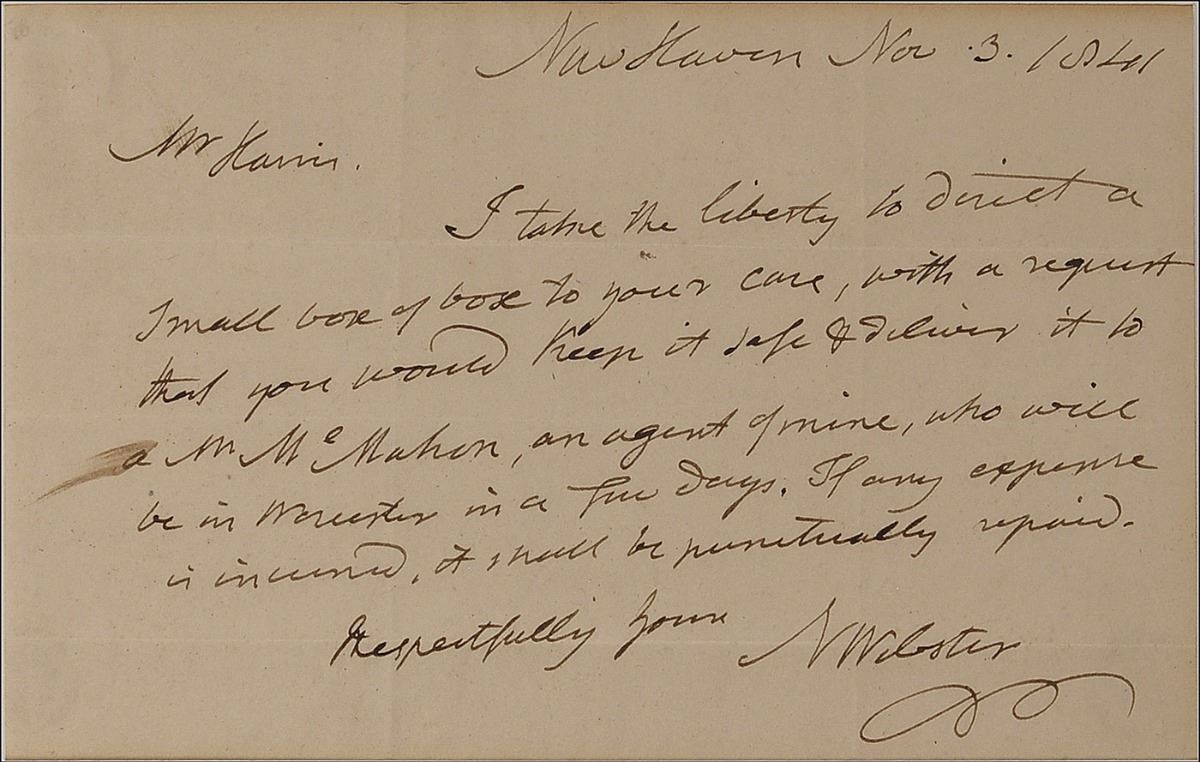 New Haven Nov. 3. 1841
Mr Harris.
I take the liberty to direct a
small box of box to your care, with a request
that you would keep it safe & deliver it to
a Mr Mc Mahon, an agent of mine, who will
be in Worcester in a few days. If any expense
is incurred, it shall be punctually repaid.
Respectfully yours N Webster